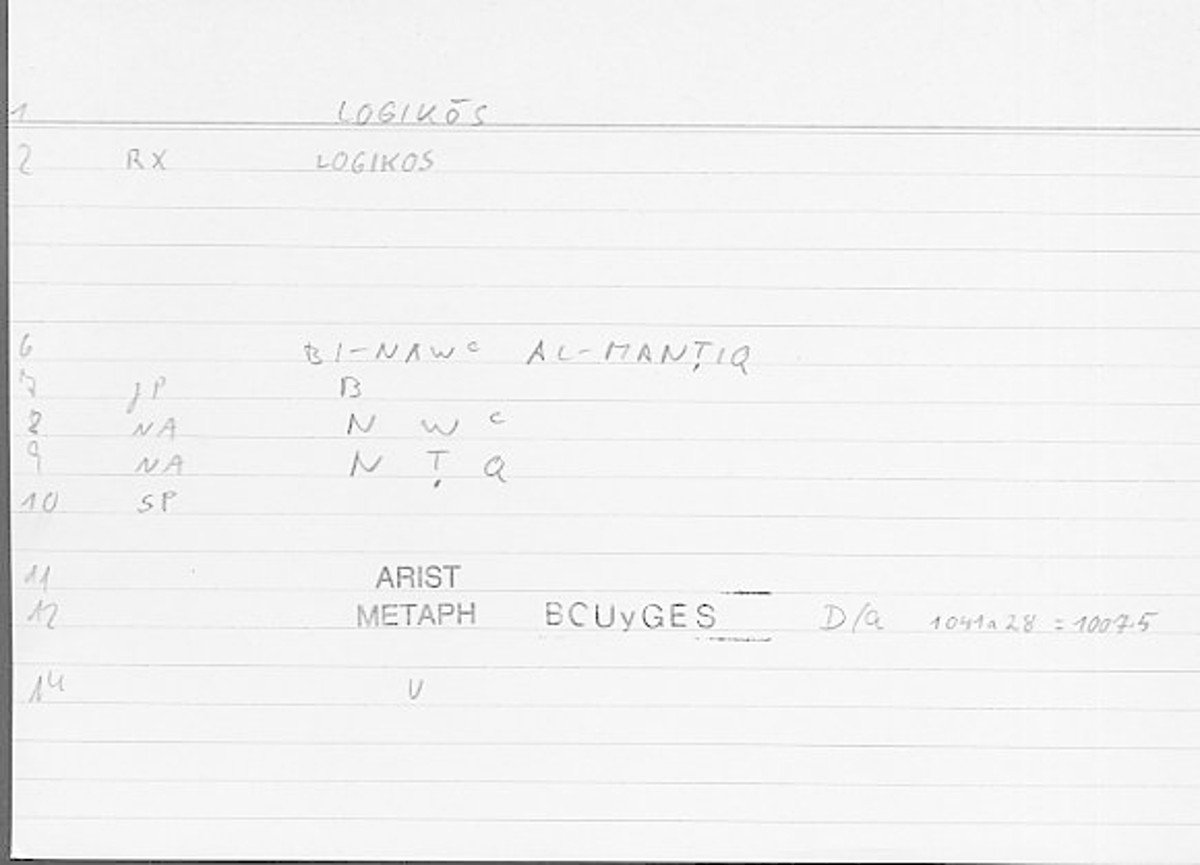 1 LOGIKŌS
2 RX LOGIKOS
6 BI-NAWʿ AL-MANṬIQ
7 JP B
8 NA N W ʿ
9 NA N Ṭ Q
10 SP
11 ARIST
12 METAPH BCUyGES D/Q 1041a28 = 1007.5
14 V